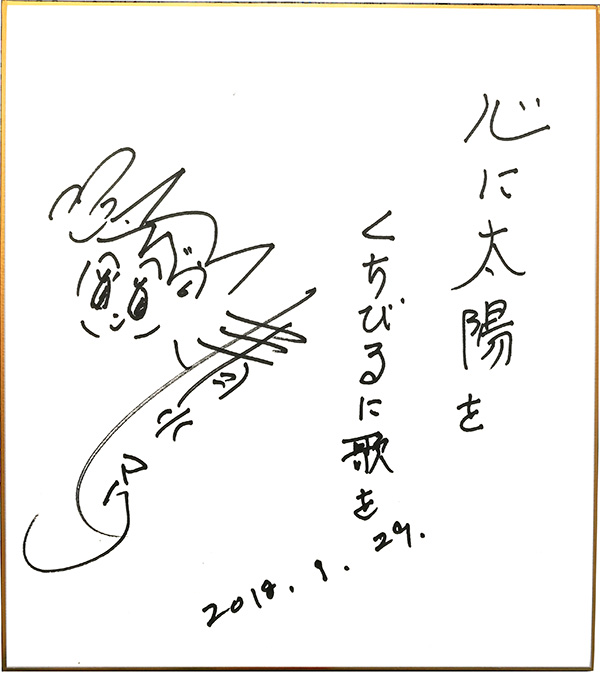 心に太陽を
くちびるに歌を
2018. 9. 29.